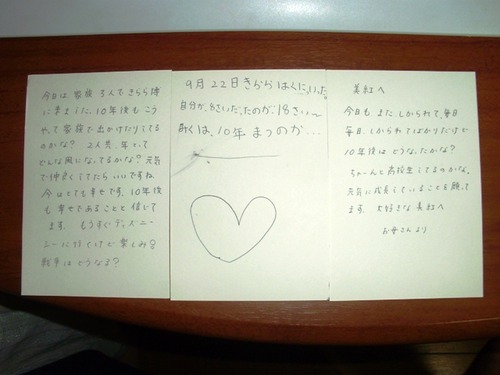 今日は、家族3人できらら博
に来ました。10年後もこう
やって家族で出かけたりしてる
のかな? 2人共、年とって
どんな風になってるかな? 元気
で仲良くしてたらいいですね
今はとても幸せです。10年後
も幸せであることを信じて
ます。 もうすぐディズニー
シーに行くけど楽しみ
戦争はどうなる?
9月22日きららはくに、いった。
自分が、8さいだったのが、18さい〜
あくは、10年まつのか...
美紅へ
今日もまた、しかられて、毎日
毎日、しかられてばかりだけど
10年後はどうなったかな?
ちゃーんと高校生してるのかな。
元気に成長していることを願って
ます。大好きな美紅へ
お母さんより